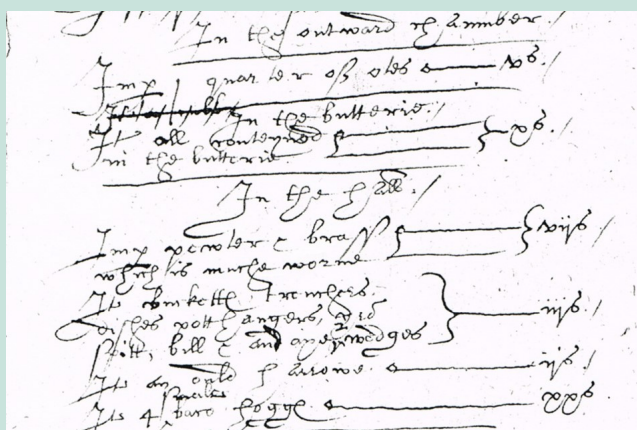 In the outward chamber
Imp quarter of otes vs.
In the butterie.
It all conteyned
in the butterie xs.
In the hall.
Imp pewter & brass
which is muche worne viis
It bucketts trenchers,
dishes pott hangers,
spitt, bill & an wedges iiis.
It an ould harrowe iis.
It 4 hoggs xxs